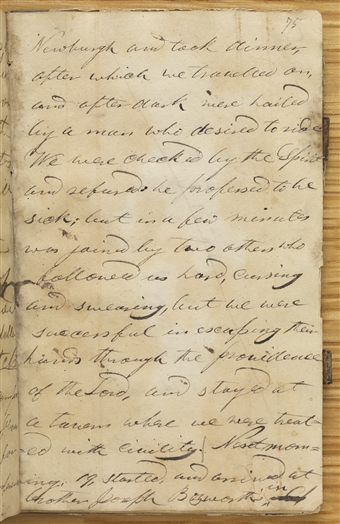 75
Newburgh and took dinner,
after which we travelled on,
and after dark were hailed
by a man who desired to ride
We were checkd by the Spirit
and refused: he professed to be
sick; but in a few minutes
was joined by two others who
followed us hard, cursing
and swearing, but we were
successful in escaping their
hands through the providence
of the Lord, and stayd at
a tavern where we were treat-
ed with civility. Next morn-
ing, started, and arrived at
brother Joseph Bosworth's in